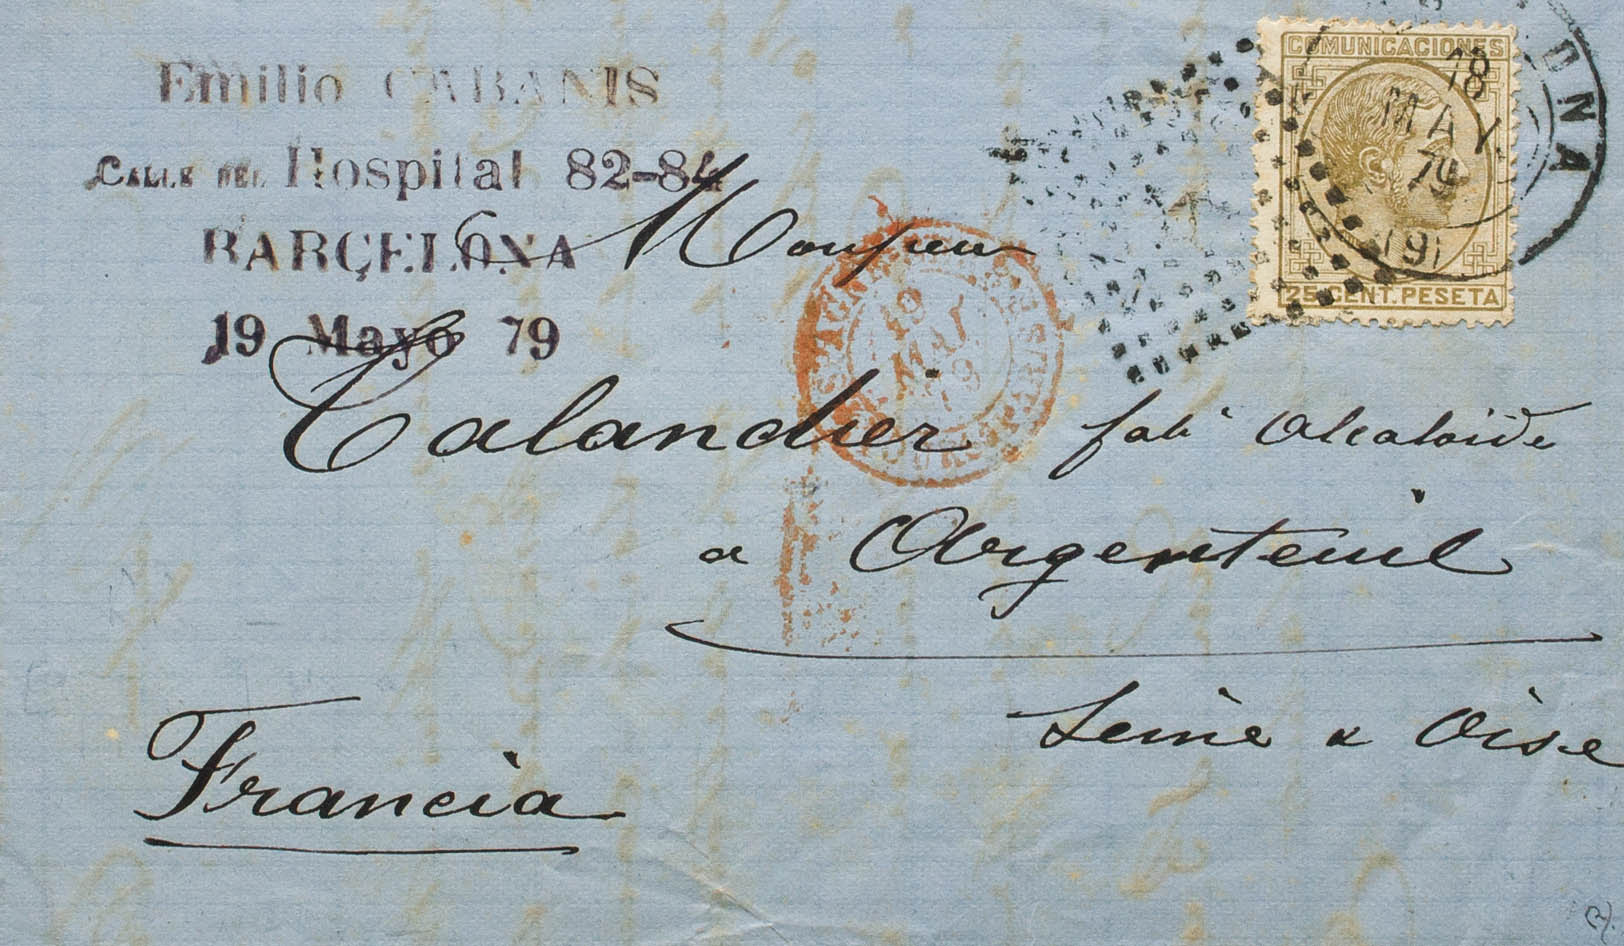 Emilio CABANIS
CALLE DEL Hospital 82-84
BARCELONA
19 Mayo 79
COMUNICACIONES
25 CENT. PESETA
18
MAY
79
ONA
Monsieur
19
MAI
79
Calandier fabt Alcaloïde
a Argenteuil
Seine & Oise
Francia